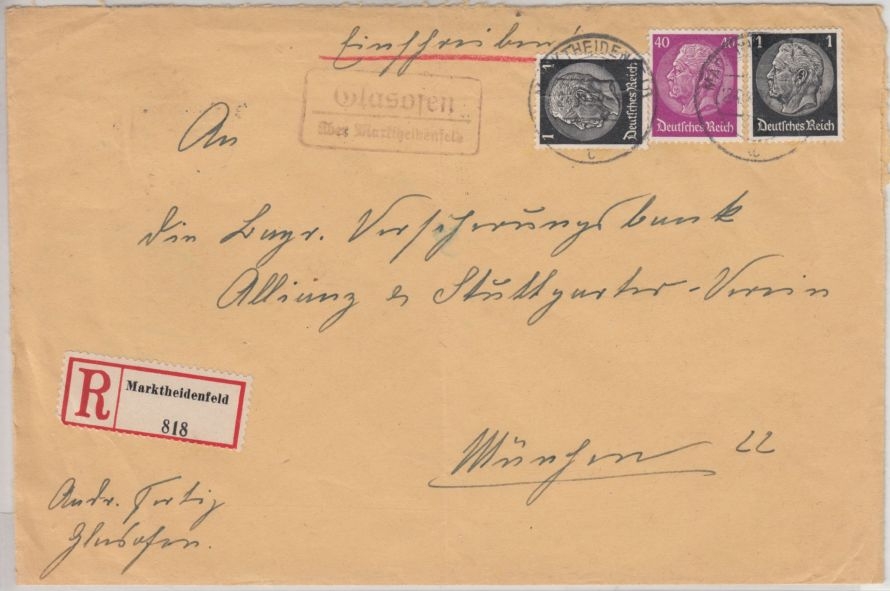 Einschreiben!
Glasofen
über Marktheidenfeld
MARKTHEIDENFELD
c
1
1
Deutsches Reich
40
40
Deutsches Reich
1
1
Deutsches Reich
An
die Bayr. Versicherungsbank
Allianz & Stuttgarter-Verein
R
Marktheidenfeld
818
München 22
Andr. Fertig
Glasofen.